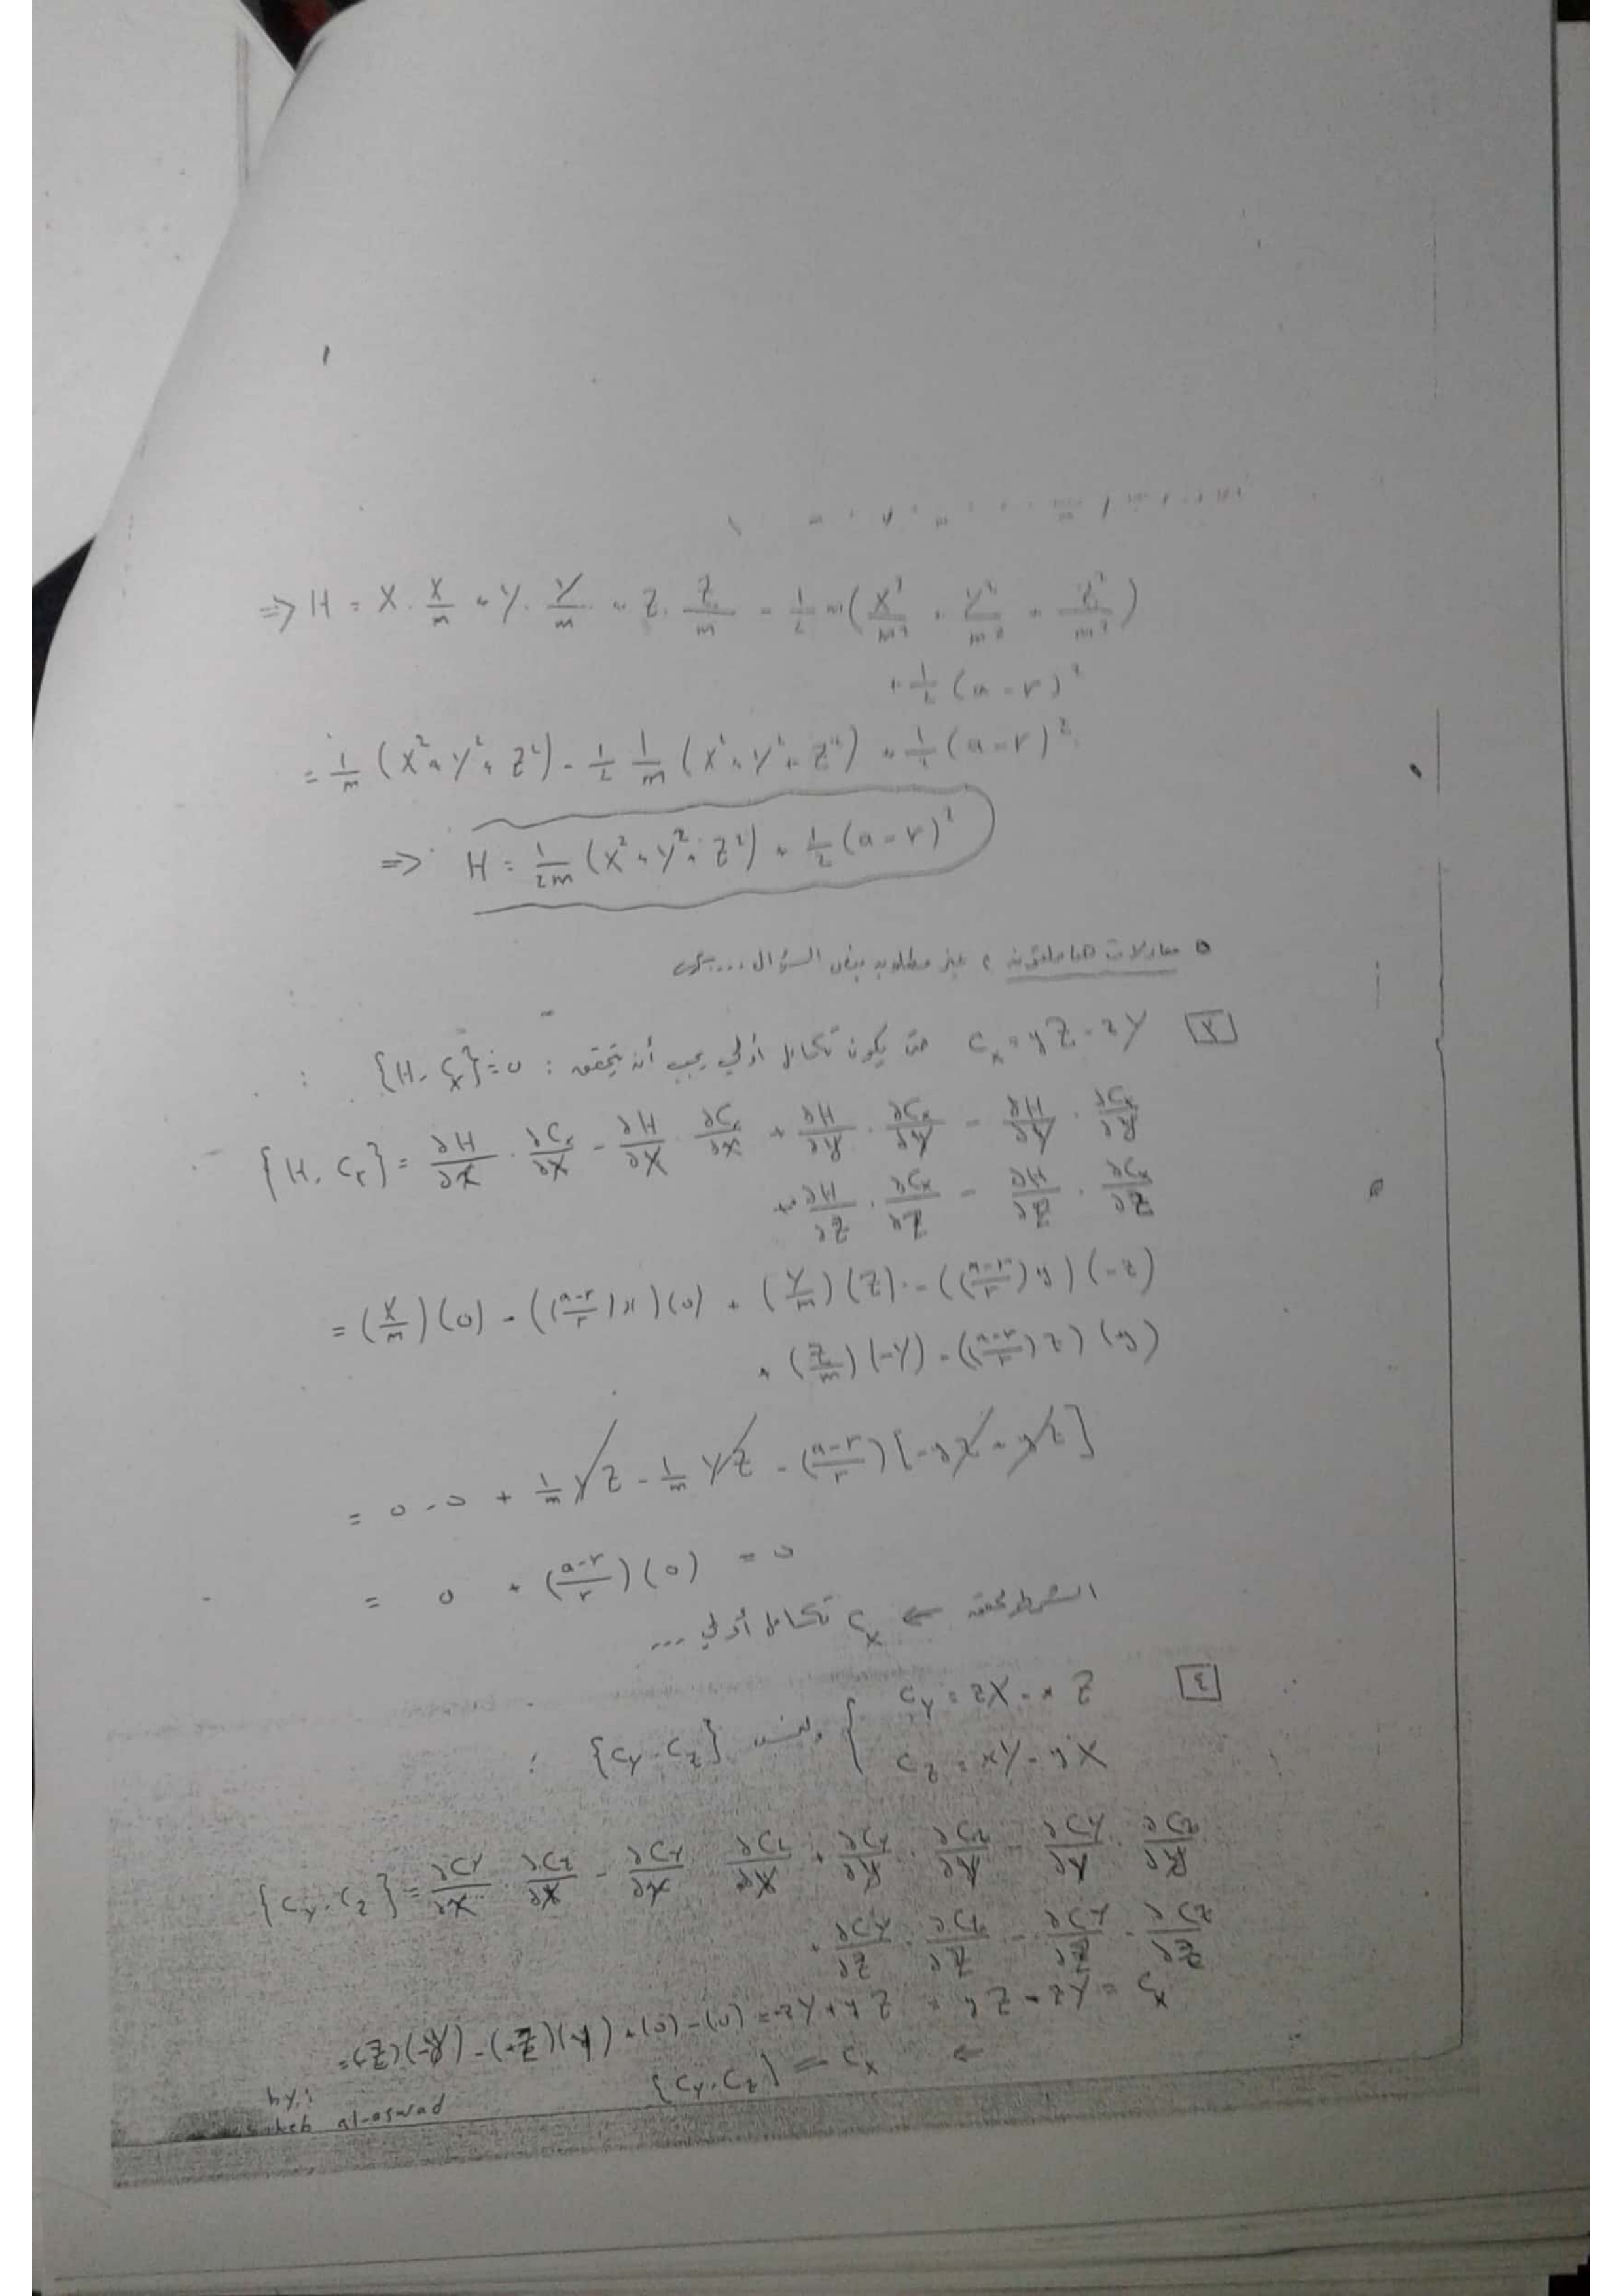 ⇒ H = X · X/m + Y · Y/m + Z · Z/m - 1/2 m (X²/m² + Y²/m² + Z²/m²)
+ 1/2 (a - r)²
= 1/m (X² + Y² + Z²) - 1/2 1/m (X² + Y² + Z²) + 1/2 (a - r)²
⇒ H = 1/2m (X² + Y² + Z²) + 1/2 (a - r)²
معادلات هاملتون ، غير مطلوبة بنص السؤال ...
٣ C_x = yZ - zY حتى يكون تكامل أولي يجب أن يتحقق : {H, C_x} = 0
{H, C_x} = ∂H/∂X · ∂C_x/∂x - ∂H/∂x · ∂C_x/∂X + ∂H/∂Y · ∂C_x/∂y - ∂H/∂y · ∂C_x/∂Y
+ ∂H/∂Z · ∂C_x/∂z - ∂H/∂z · ∂C_x/∂Z
= (X/m)(0) - ((a-r/r)x)(0) + (Y/m)(Z) - ((a-r/r)y)(-z)
+ (Z/m)(-Y) - ((a-r/r)z)(y)
= 0 - 0 + 1/m YZ - 1/m YZ - (a-r/r)[-yz + yz]
= 0 + (a-r/r)(0) = 0
الشرط محقق ⇐ C_x تكامل أولي ...
٤ { C_y = zX - xZ
C_z = xY - yX {C_y, C_z} :
{C_y, C_z} = ∂C_y/∂X · ∂C_z/∂x - ∂C_y/∂x · ∂C_z/∂X + ∂C_y/∂Y · ∂C_z/∂y - ∂C_y/∂y · ∂C_z/∂Y
+ ∂C_y/∂Z · ∂C_z/∂z - ∂C_y/∂z · ∂C_z/∂Z
= (-Z)(-y) - (z)(Y) + (0) - (0) = -zY + yZ = yZ - zY = C_x
⇐ {C_y, C_z} = C_x
by:
al-aswad